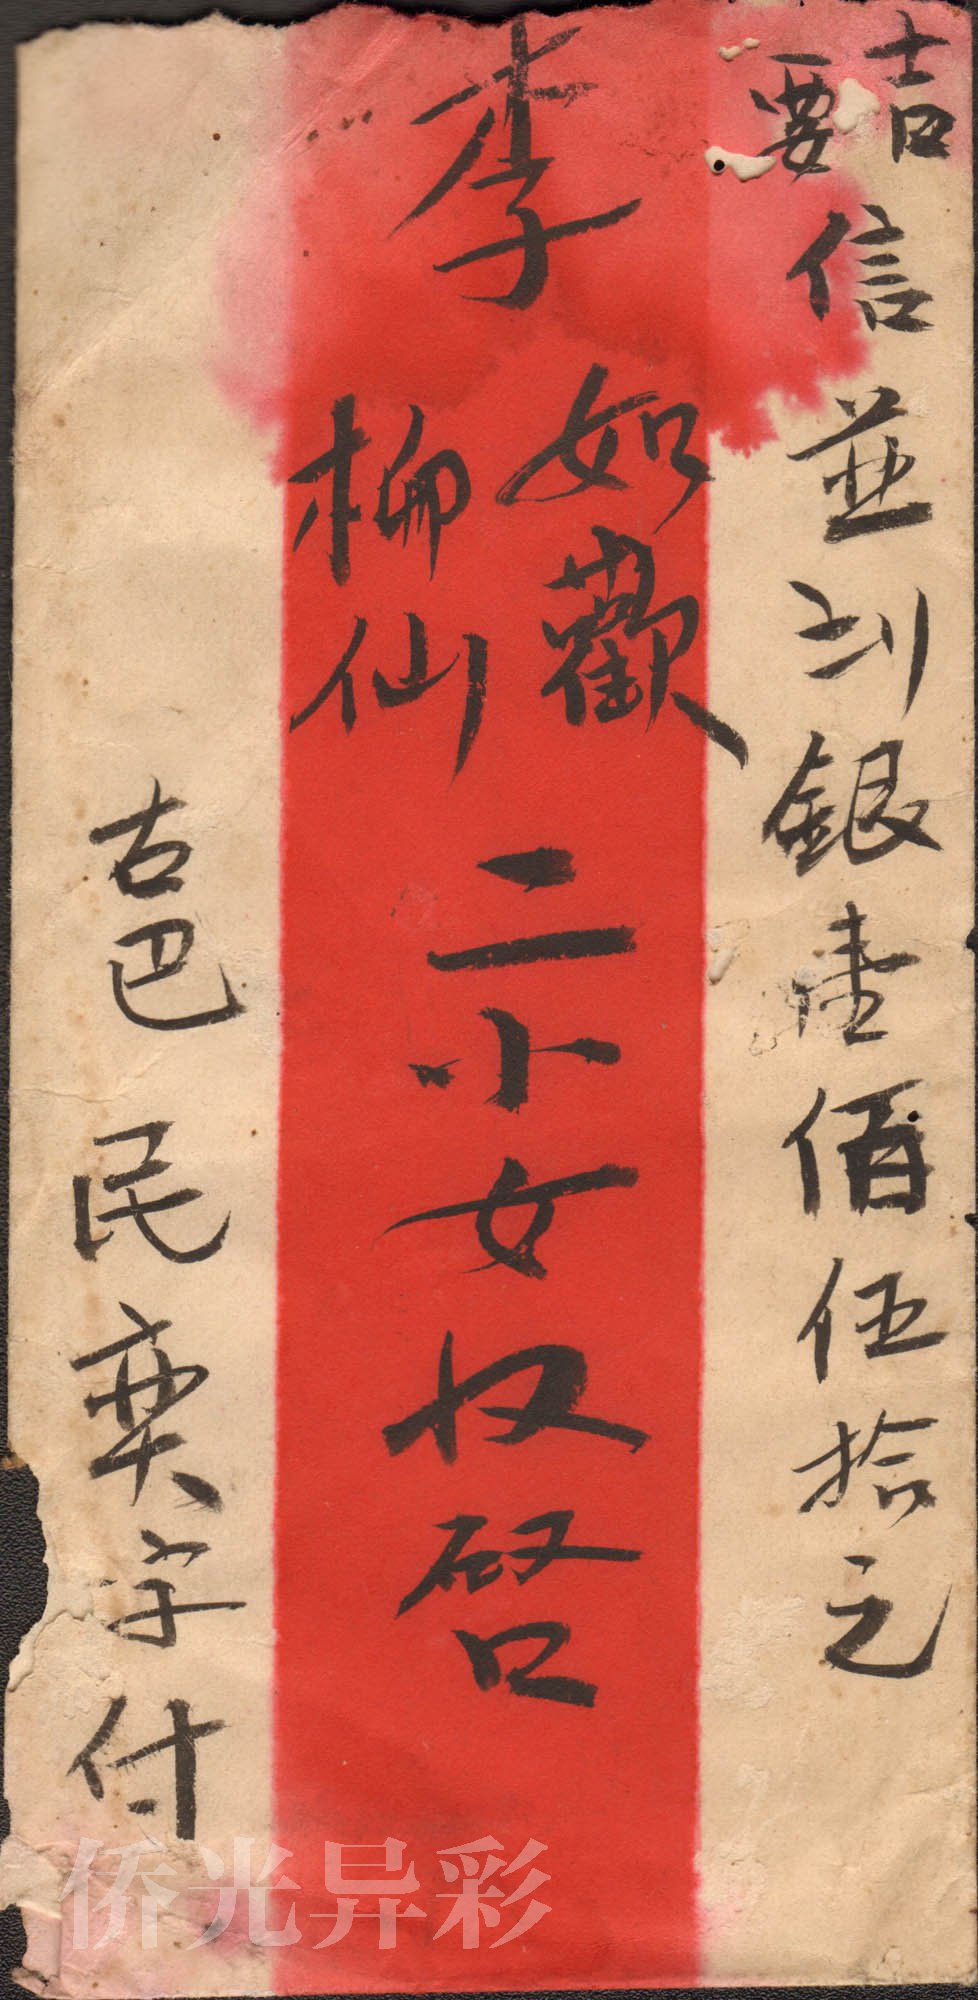 吉
要信並刈銀壹佰伍拾元
李
如歡
柳仙
二小女收啓
古巴 民奕字付
侨光异彩